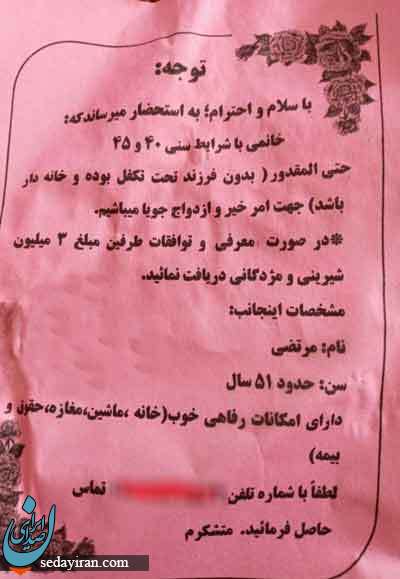 توجه:
با سلام و احترام؛ به استحضار میرساندکه:
خانمی با شرایط سنی ۴۰ و ۴۵
حتی المقدور( بدون فرزند تحت تکفل بوده و خانه دار
باشد) جهت امر خیر و ازدواج جویا میباشیم.
*در صورت معرفی و توافقات طرفین مبلغ ۳ میلیون
شیرینی و مژدگانی دریافت نمائید.
مشخصات اینجانب:
نام: مرتضی
سن: حدود ۵۱ سال
دارای امکانات رفاهی خوب(خانه ،ماشین،مغازه،حقوق و
بیمه)
لطفاً با شماره تلفن تماس
حاصل فرمائید. متشکرم
صدای ایران
sedayiran.com